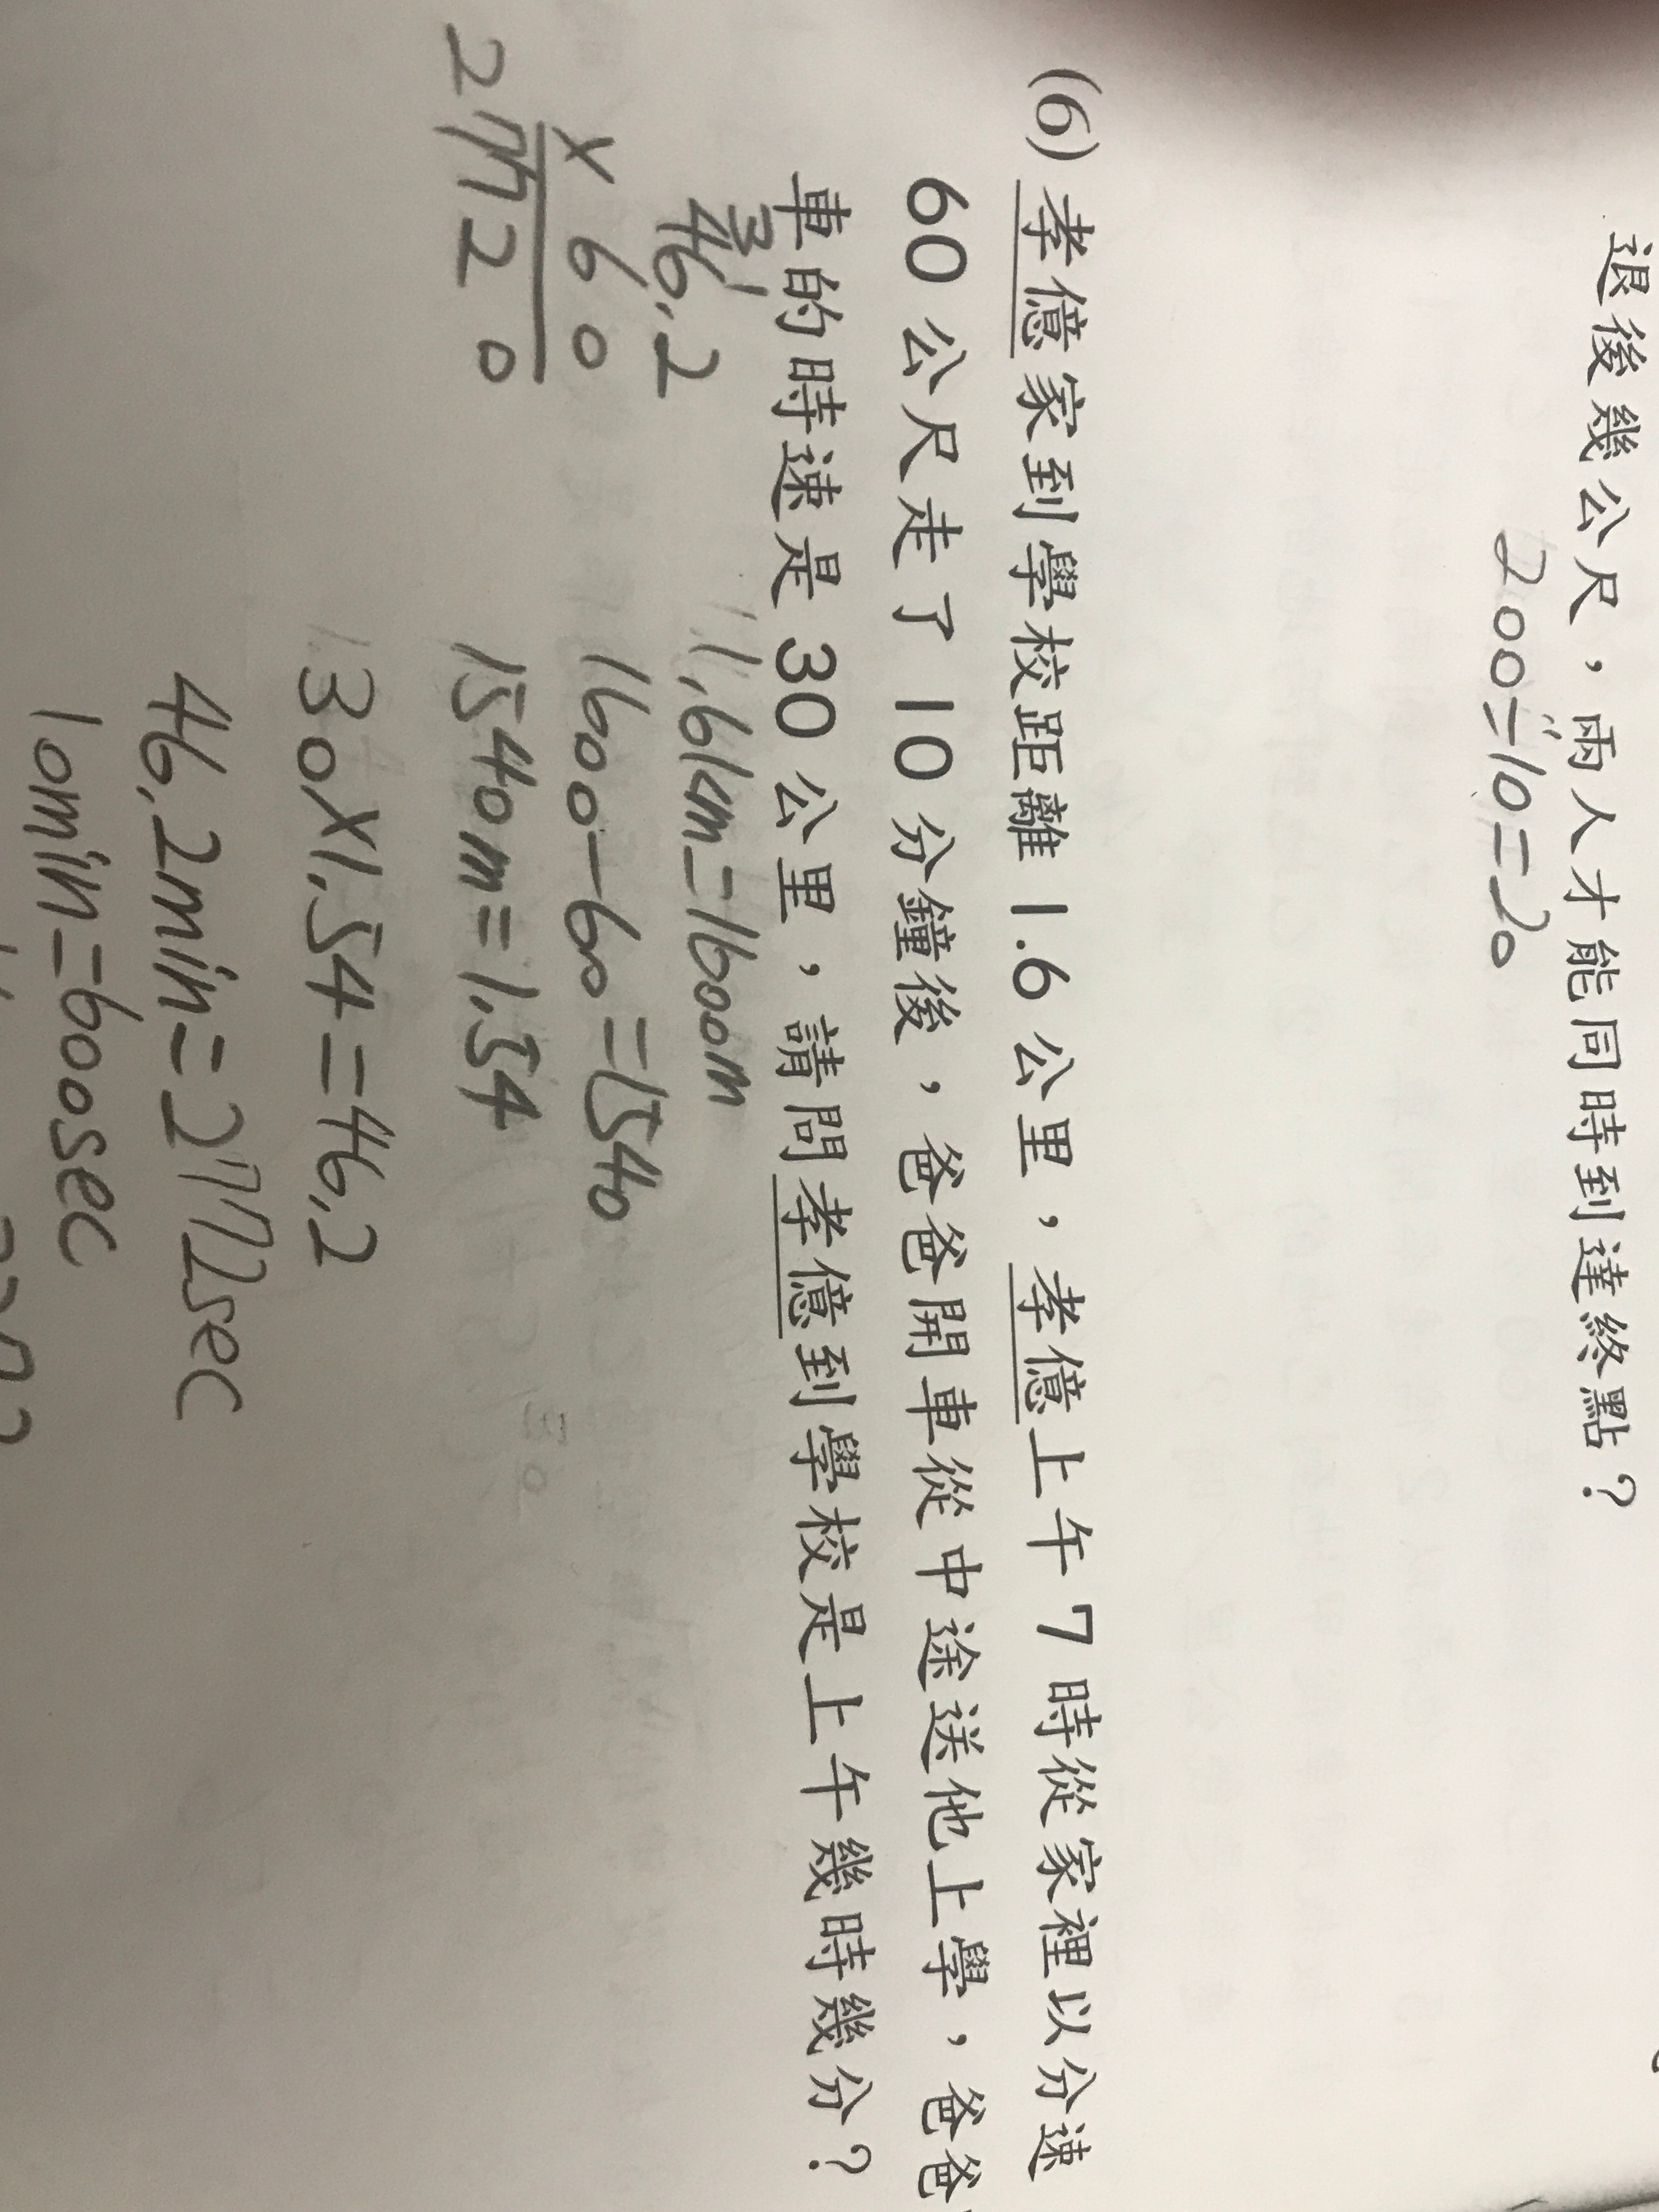 退後幾公尺，兩人才能同時到達終點？
200÷10=20
(6) 孝億家到學校距離 1.6 公里，孝億上午 7 時從家裡以分速
60 公尺走了 10 分鐘後，爸爸開車從中途送他上學，爸爸
車的時速是 30 公里，請問孝億到學校是上午幾時幾分？
1.6km=1600m
1600-60=1540
1540m=1.54
30X1.54=46.2
46.2min=2772sec
10min=600sec
46.2
X 60
2772 0